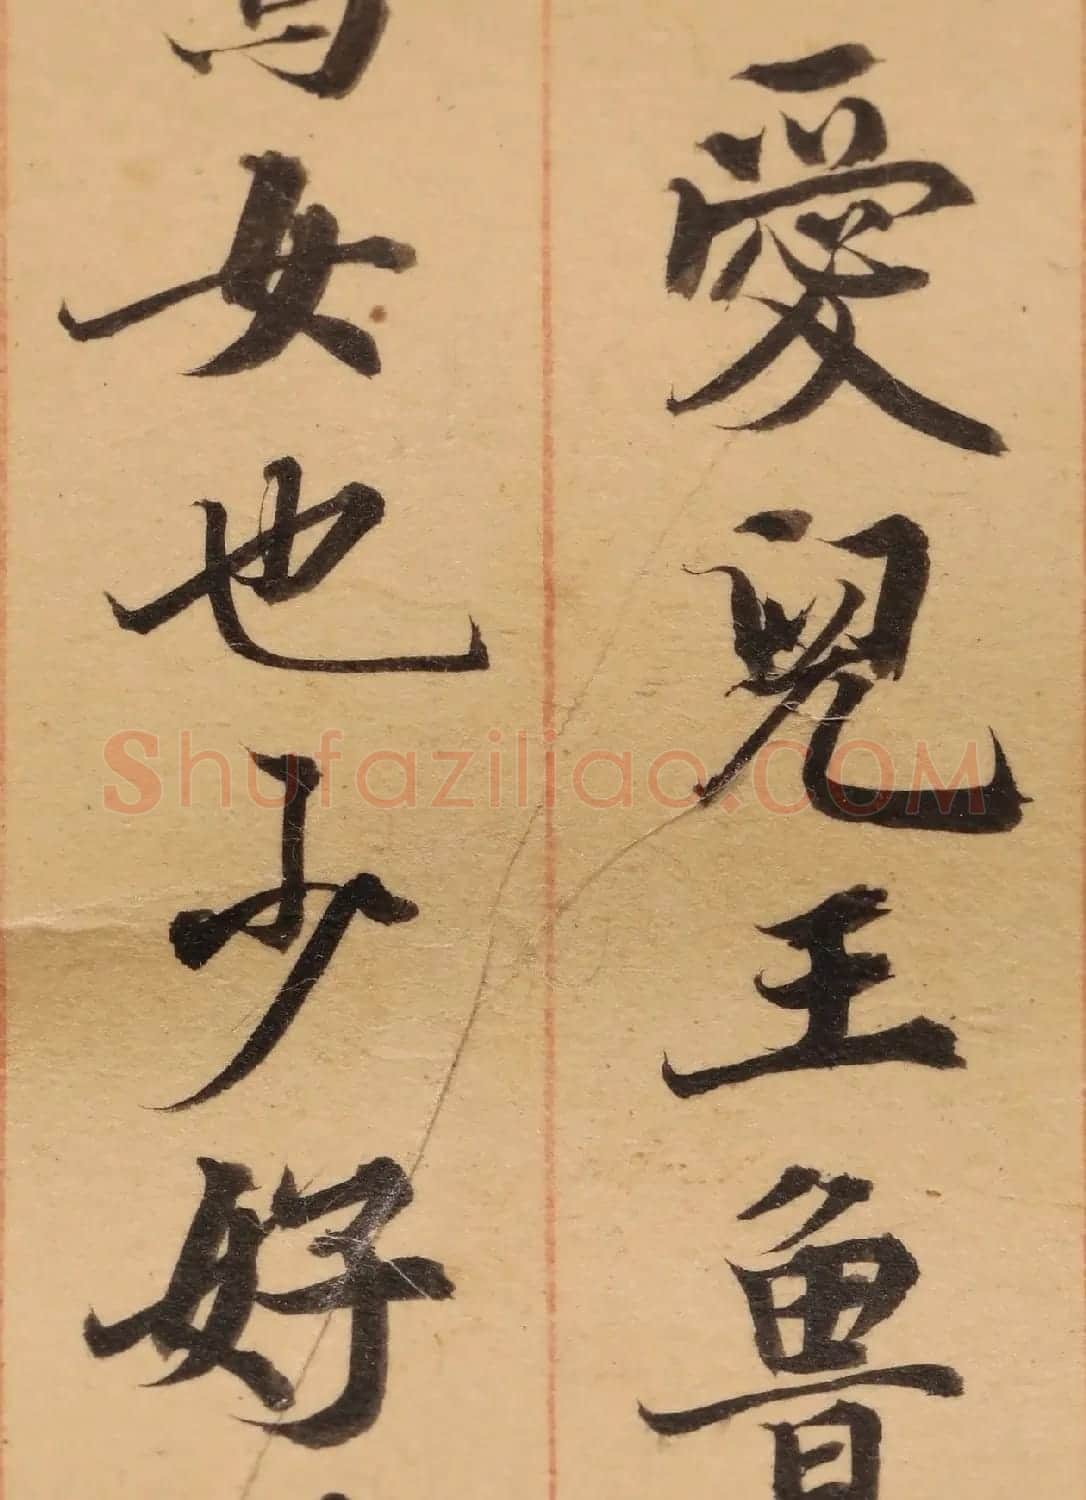 愛兒王魯
女也少好
Shufaziliao.COM